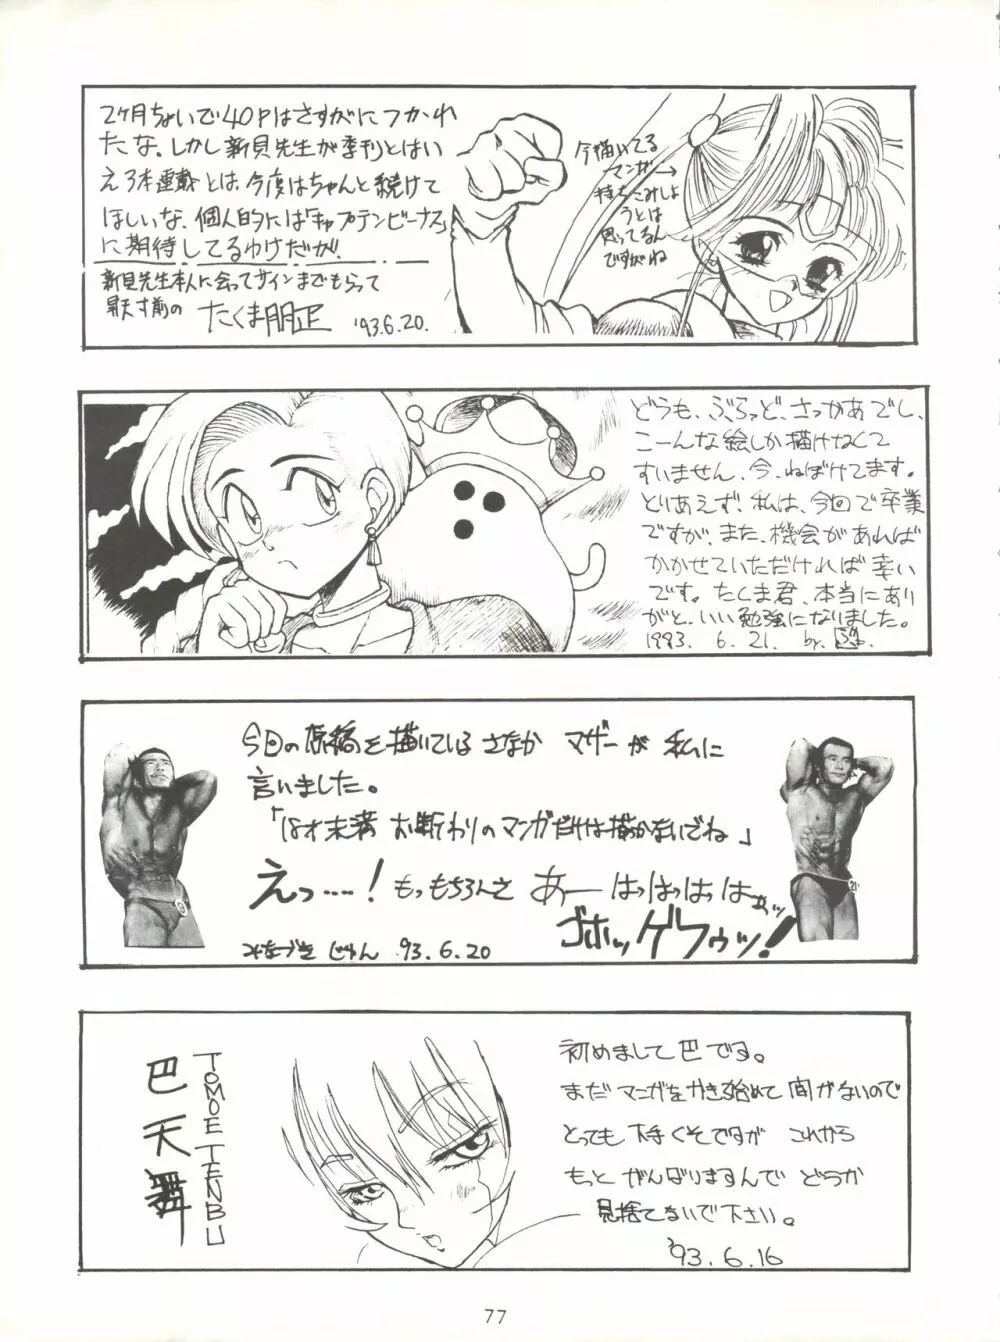 2ヶ月ちょいで40Pはさすがにつかれ
たな。しかし新貝先生が季刊とはい
え3本連載とは、今度はちゃんと続けて
ほしいな、個人的には「キャプテンビーナス」
に期待してるわけだが、
新貝先生本人に会ってサインまでもらって
昇天寸前の たくま朋正 '93.6.20.
今描いてる
マンガ→
持ちこみしよ
うとは
思ってるん
ですがね
どうも、ぶろっど、さっかあでし、
こーんな絵しか描けねくて
すいません、今、ねぼけてます。
とりあえず、私は、今回で卒業
ですが、また、機会があれば
かかせていただければ幸い
です。たくま君、本当にあり
がと、いい勉強になりました。
1993. 6. 21. by.
今回の原稿を描いているさなか マザーが 私に
言いました。
「18才未満 お断わりのマンガだけは描かないでね」
えっ……! もっもちろんさ あーーはっはっはっはぁッ
ゴホッゲフゥッ!
みなづき じゅん 93.6.20
21
巴天舞
TOMOE TENBU
初めまして巴です。
まだマンガをかき始めて間がないので
とっても下手くそですが これから
もっと がんばりますんで どうか
見捨てないで下さい。
'93.6.16
77